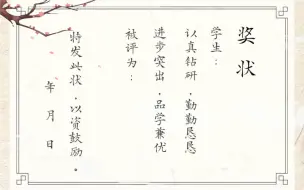 奖状
学生：
认真钻研，勤勤恳恳
进步突出，品学兼优
被评为：
特发此状，以资鼓励。
年月日